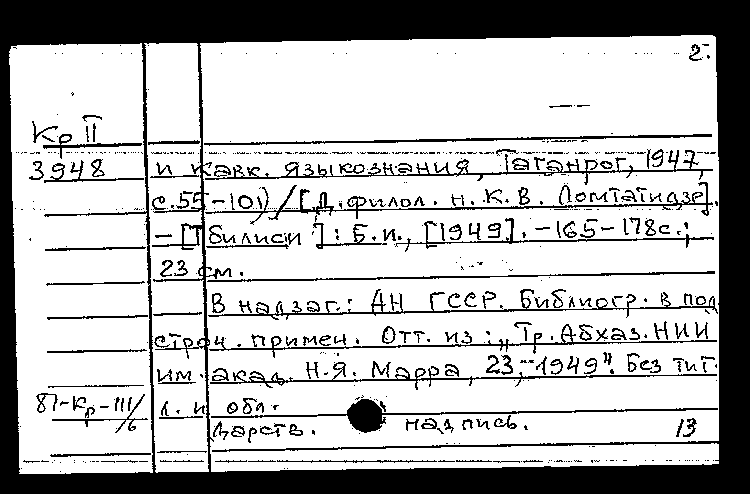 2.
Кр II
3948
и кавк. языкознания, Таганрог, 1947,
с.55-101) / [Д. филол. н. К. В. Ломтатидзе].
— [Тбилиси]: Б.и., [1949]. - 165-178с.;
23 см.
В надзаг.: АН ГССР. Библиогр. в под-
строч. примеч. Отт. из: „Тр. Абхаз. НИИ
им. акад. Н.Я. Марра, 23, 1949". Без тит.
л. и обл.
81-Кр-111/6
Дарств. надпись.
13